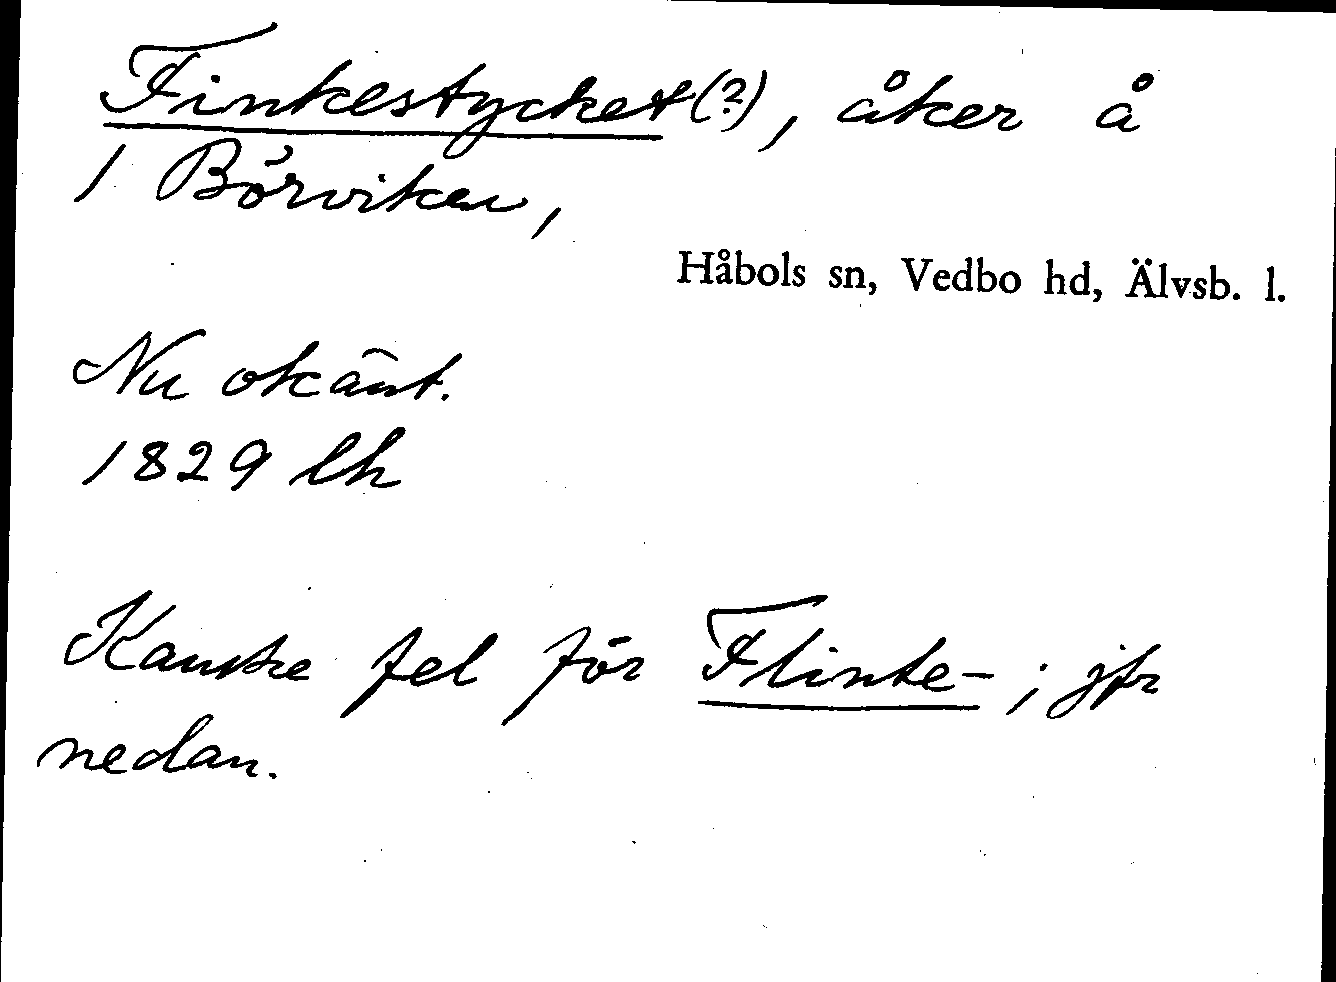 Finkestycket(?), åker å
1 Börviken,
Håbols sn, Vedbo hd, Älvsb. l.
Nu okänt.
1829 lh
Kanske fel för Flinke-; jfr
nedan.